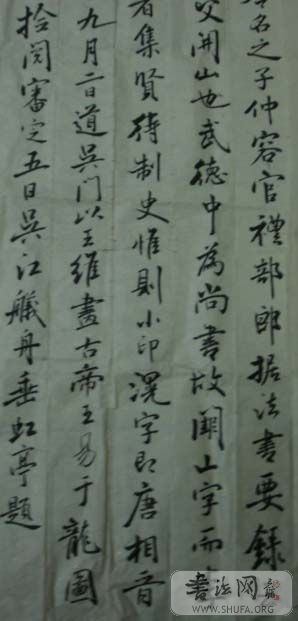 名之子仲容官禮部郎据法書要錄
父開山也武德中為尚書故闕山字而
者集賢待制史惟則小印滉字即唐相晉
九月二日道吳門以王維畫古帝王易于龍圖
拾閱審定五日吳江艤舟垂虹亭題
书法网
WWW.SHUFA.ORG